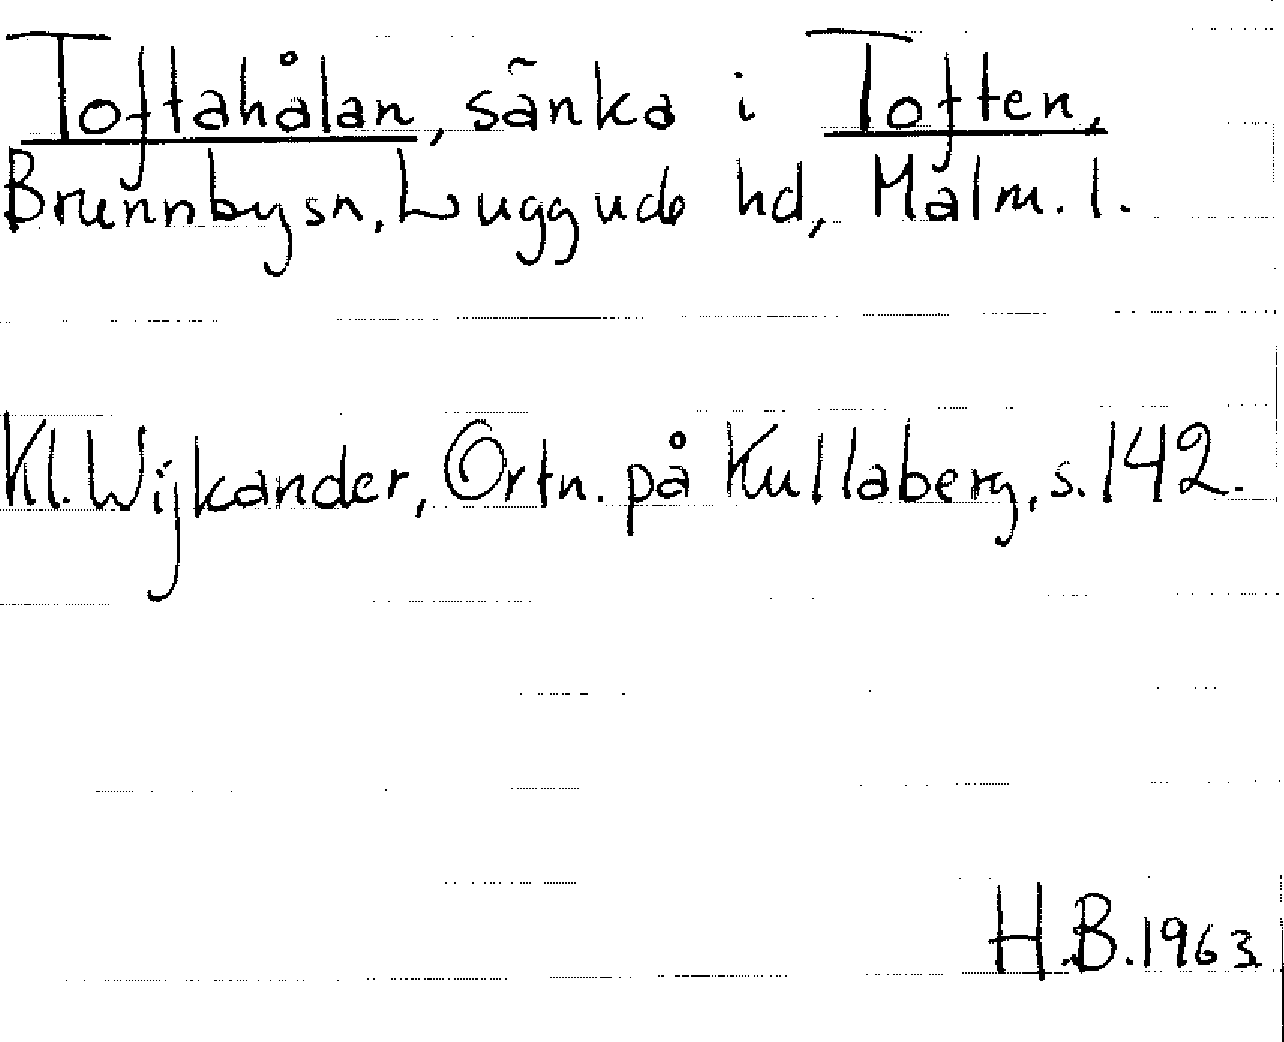 Toftahålan, sänka i Toften,
Brunnby sn, Luggude hd, Malm. l.
Kl. Wijkander, Ortn. på Kullaberg, s. 142.
H.B. 1963